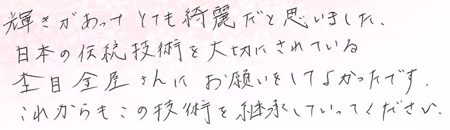 輝きがあってとても綺麗だと思いました、
日本の伝統技術を大切にされている
杢目金屋さんにお願いをしてよかったです.
これからもこの技術を継承していってください.